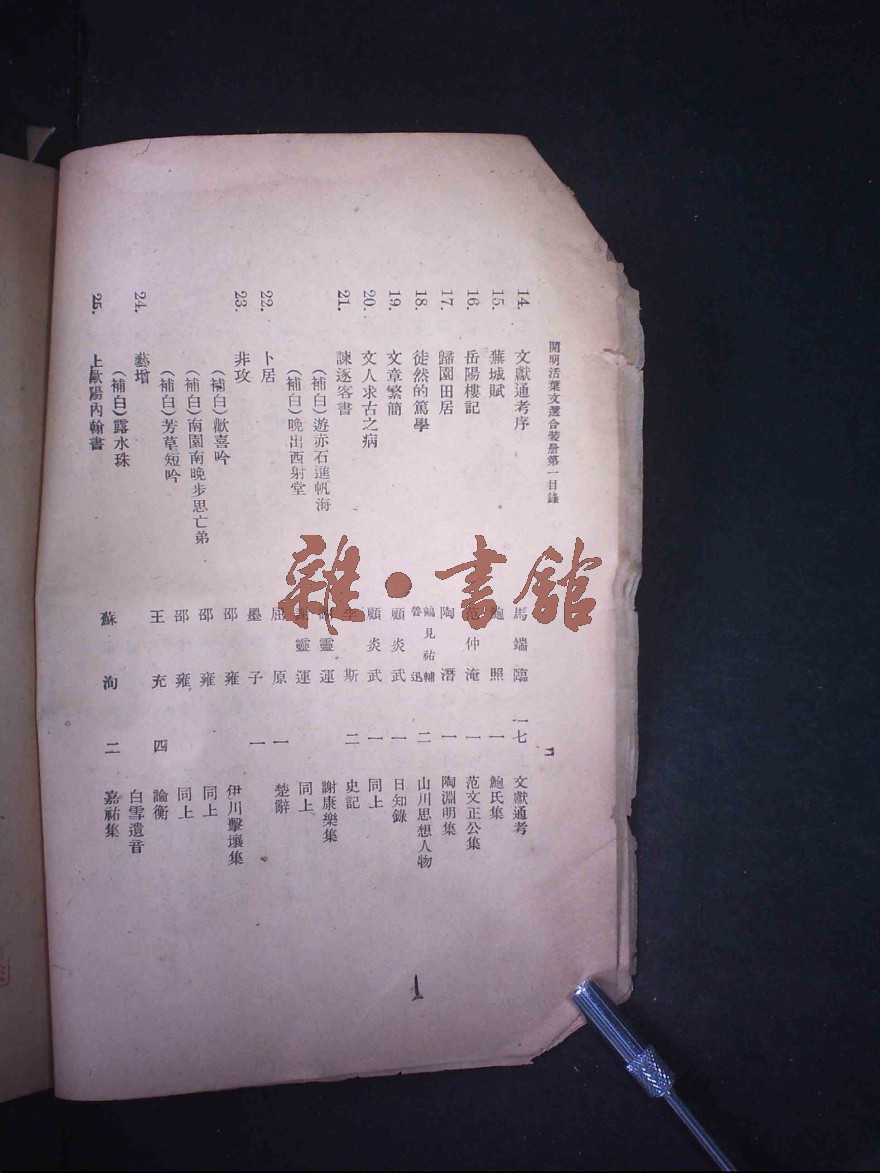 開明活葉文選合裝册第一目錄
14. 文獻通考序 馬端臨 一七 文獻通考
15. 蕪城賦 鮑照 一 鮑氏集
16. 岳陽樓記 范仲淹 一 范文正公集
17. 歸園田居 陶潛 一 陶淵明集
18. 徒然的篤學 鶴見祐輔 魯迅 二 山川思想人物
19. 文章繁簡 顧炎武 一 日知錄
20. 文人求古之病 顧炎武 一 同上
21. 諫逐客書 李斯 二 史記
(補白)遊赤石進帆海 謝靈運 謝康樂集
(補白)晚出西射堂 謝靈運 同上
22. 卜居 屈原 一 楚辭
23. 非攻 墨子 一
(補白)歡喜吟 邵雍 伊川擊壤集
(補白)南園南晚步思亡弟 邵雍 同上
(補白)芳草短吟 邵雍 同上
24. 藝增 王充 四 論衡
(補白)露水珠 白雪遺音
25. 上歐陽內翰書 蘇洵 二 嘉祐集
雜·書館